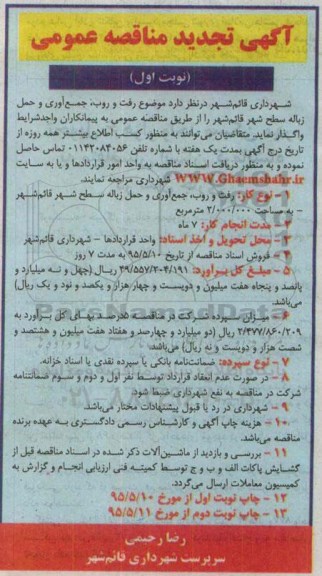 آگهی تجدید مناقصه عمومی
(نوبت اول)
شهرداری قائم‌شهر درنظر دارد موضوع رفت و روب، جمع‌آوری و حمل
زباله سطح شهر قائم‌شهر را از طریق مناقصه عمومی به پیمانکاران واجدشرایط
واگذار نماید. متقاضیان می‌توانند به منظور کسب اطلاع بیشتر همه روزه از
تاریخ درج آگهی بمدت یک هفته با شماره تلفن ۰۱۱۴۲۰۸۴۰۵۶ تماس حاصل
نموده و به منظور دریافت اسناد مناقصه به واحد امور قراردادها و یا به سایت
WWW.Ghaemshahr.ir شهرداری مراجعه نمایند.
۱- نوع کار: رفت و روب، جمع‌آوری و حمل زباله سطح شهر قائم‌شهر
- به مساحت ۲/۰۰۰/۰۰۰ مترمربع
۲- مدت انجام کار: ۷ ماه
۳- محل تحویل و اخذ اسناد: واحد قراردادها - شهرداری قائم‌شهر
۴- فروش اسناد مناقصه از تاریخ ۹۵/۵/۱۰ به مدت ۷ روز
۵- مبلغ کل برآورد: ۴۹/۵۵۷/۲۰۴/۱۹۱ ریال(چهل و نه میلیارد و
پانصد و پنجاه هفت میلیون و دویست و چهار هزار و یکصد و نود و یک ریال)
می‌باشد.
۶- میزان سپرده شرکت در مناقصه ۵درصد بهای کل برآورد به
۲/۴۷۷/۸۶۰/۲۰۹ ریال (دو میلیارد و چهارصد و هفتاد هفت میلیون و هشتصد و
شصت هزار و دویست و نه ریال) می‌باشد.
۷- نوع سپرده: ضمانت‌نامه بانکی یا سپرده نقدی یا اسناد خزانه.
۸- در صورت عدم انعقاد قرارداد توسط نفر اول و دوم و سوم ضمانتنامه
شرکت در مناقصه به نفع شهرداری ضبط شود.
۹- شهرداری در رد یا قبول پیشنهادات مختار می‌باشد.
۱۰- هزینه چاپ آگهی و کارشناس رسمی دادگستری به عهده برنده
مناقصه می‌باشد.
۱۱- بررسی و بازدید از ماشین‌آلات ذکر شده در اسناد مناقصه قبل از
گشایش پاکات الف و ب و ج توسط کمیته فنی ارزیابی انجام و گزارش به
کمیسیون معاملات ارسال می‌گردد.
۱۲- چاپ نوبت اول از مورخ ۹۵/۵/۱۰
۱۳- چاپ نوبت دوم از مورخ ۹۵/۵/۱۱
رضا رحیمی
سرپرست شهرداری قائم‌شهر